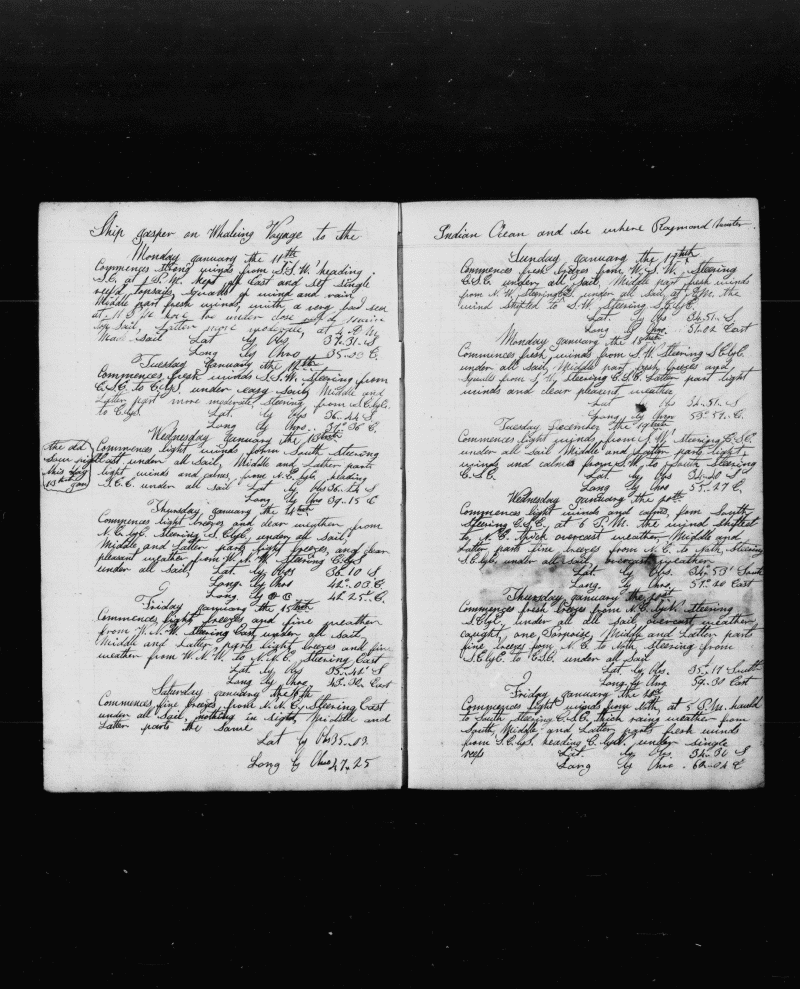 Ship gasper on Whaleing Voyage to the
Monday ganuary the 11th
Commences strong winds from S.S.W. heading
S.E. at 1 P.M. Kept off East and set single
reef'd topsails, squalls of wind and rain
Middle part fresh winds, with a very bad sea
at
easy Sail, Latter more moderate, at 4 P.M.
Made sail Lat by Obs 37-31 S
Long by Chro 35-03 E
Tuesday ganuary the 12th
Commences fresh winds S.S.W. steering from
E.S.E. to E.byS under easy sail, Middle and
Latter part more moderate steering from S.E.byE.
to E.byS. Lat. by Obs 36-44 S
Long by Chro. 37-36 E
Wednesday ganuary the 13th
the old
sow
this day
13th gan
Commences light winds from South Steering
East, under all Sail, Middle and Latter parts
light winds and calms, from N.E.byE, heading
S.E. under all sail Lat by Obs 36-24 S
Long by Chro 39-15 E
Thursday ganuary the 14th
Commences light breezes and clear weather from
N.E.byE. Steering S.E.byE, under all Sail,
Middle and Latter parts light breezes, and clear
pleasant weather from W.N.W. Steering E.byS
under all Sail, Lat. by Obs 36-10 S
Long by Chro 42-03 E
Long by 42-25 E
Friday ganuary the 15th
Commences light breezes and fine weather
from W.N.W. Steering East under all Sail,
Middle and Latter parts light breezes and fine
weather from W.N.W. to N.N.E. Steering East
Lat by Obs 35-44 S
Long by Chro 45-36 East
Saturday ganuary the 16th
Commences fine breezes from N.N.E. Steering East
under all Sail, nothing in sight, Middle and
Latter parts the same
Lat by Obs 35-03
Long by Chro 47-25
Indian Ocean and else where Raymond
Sunday ganuary the 17th
Commences fresh breezes from W.S.W. Steering
E.S.E. under all Sail, Middle part fresh winds
from N.W. Steering E.S.E. under all sail, at P.M. the
wind shifted to S.W. Steering S.E.byE.
Lat. by Obs. 34-51 S
Long by Chro. 51-02 East
Monday ganuary the 18th
Commences fresh winds from S.W. Steering S.E.byE.
under all Sail, Middle part fresh breezes and
squalls from S.W. Steering E.S.E. Latter part light
winds and clear pleasant weather
Lat by Obs 34-51 S
Long by Chro 53-59 E.
Tuesday December the 19th
Commences light winds from S.W. Steering E.S.E.
under all Sail Middle and Latter parts light
winds and calms from S.W. to South Steering
E.S.E. Lat by Obs 34-20 S
Long by Chro 55-27 E
Wednesday ganuary the 20th
Commences light winds and calms, from South
Steering E.S.E. at 6 P.M. the wind shifted
to N.E. thick overcast weather, Middle and
Latter parts fine breezes from N.E. to Nth, Steering
S.E.byE. under all sail, overcast weather
Lat by Obs. 34-53 South
Long. by Chro 57-20 East
Thursday ganuary the
Commences fresh breezes from N.E.byN. Steering
S.E.byE, under all all sail, overcast weather,
caught, one Porpoise, Middle and Latter parts
fine breezes from N.E. to Nth, steering from
S.E.byE. to E.S.E. under all Sail
Lat by Obs. 35-17 South
Long. by Chro 59-30 East
Friday ganuary the
Commences light winds from Nth, at 5 P.M. hauld
to South Steering E.S.E. thick rainy weather from
South, Middle and Latter parts fresh winds
from S.E.byS. heading E.byN. under single
reefs Lat by Obs. 34-36 S
Long by Chro. 60-04 E